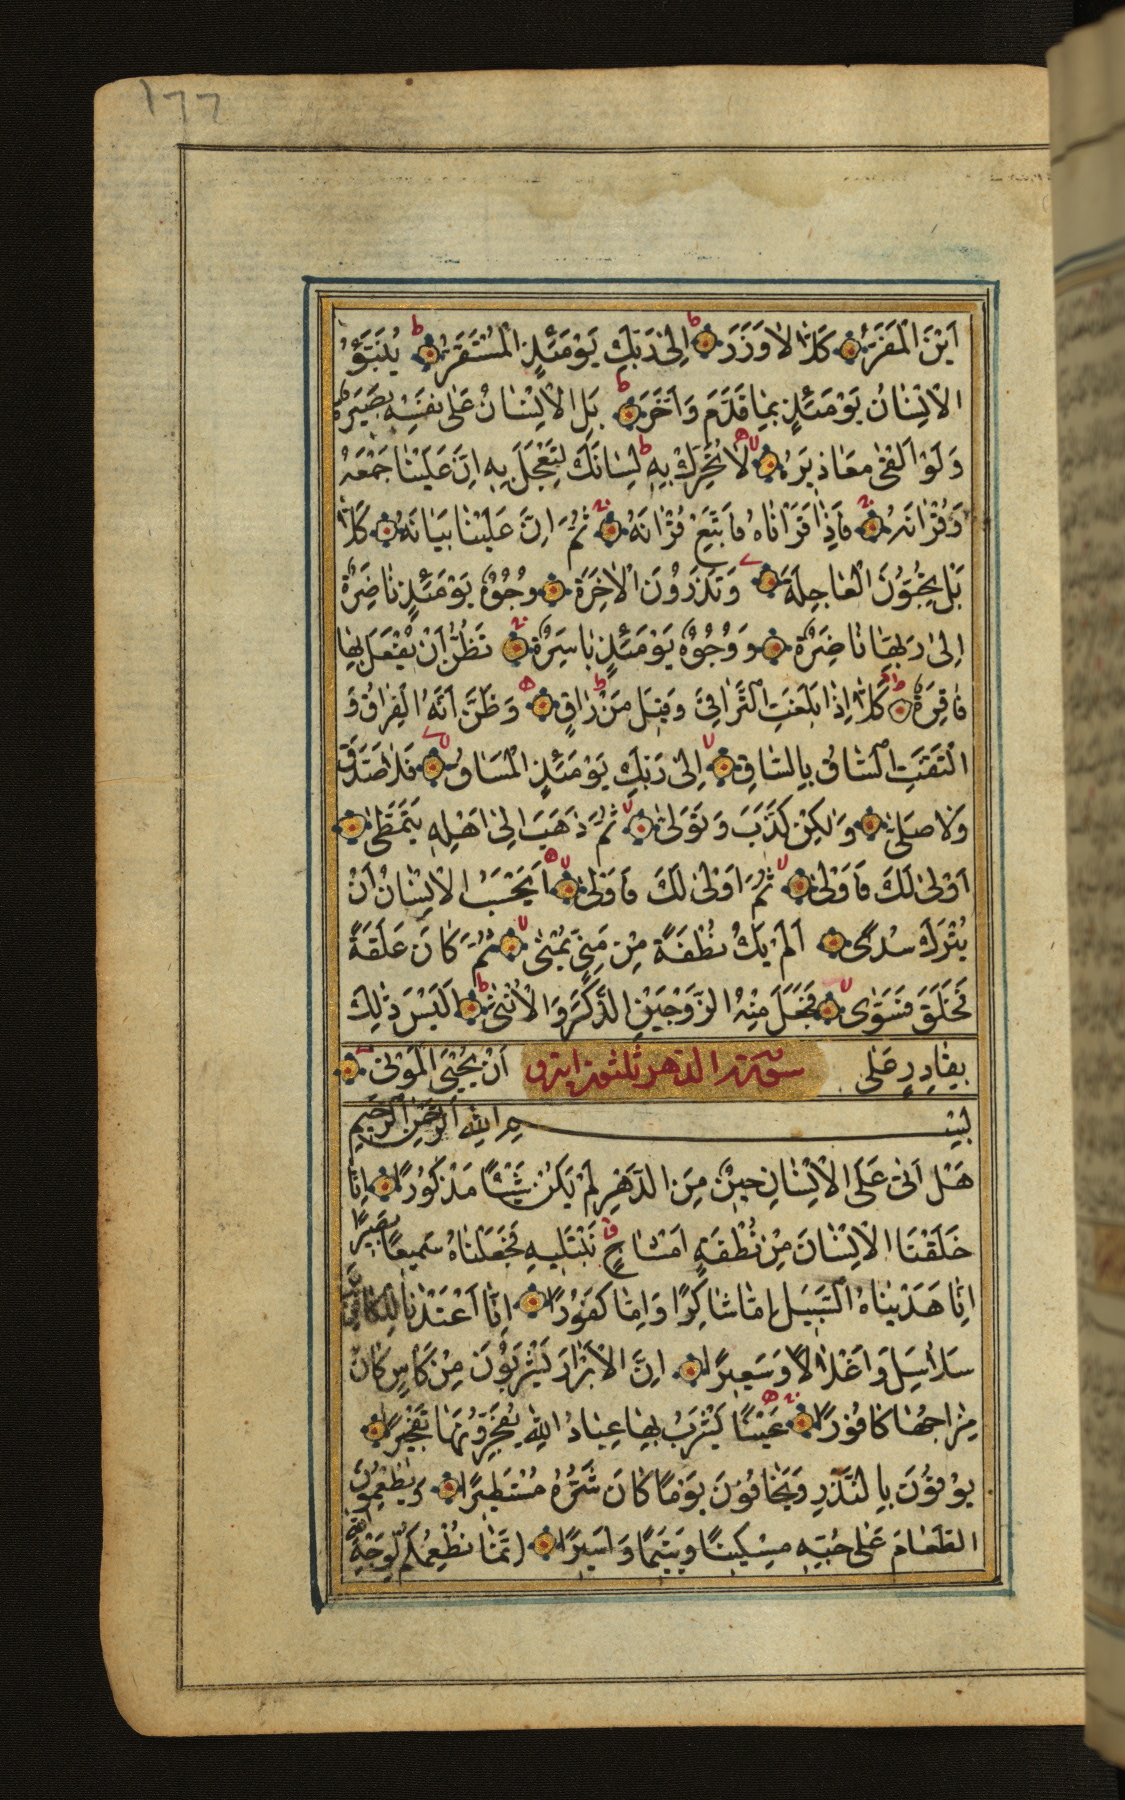 ١٦٦
اَيْنَ الْمَفَرُّ كَلَّا لَا وَزَرَ اِلٰى رَبِّكَ يَوْمَئِذٍ الْمُسْتَقَرُّ يُنَبَّؤُ
الْاِنْسَانُ يَوْمَئِذٍ بِمَا قَدَّمَ وَاَخَّرَ بَلِ الْاِنْسَانُ عَلٰى نَفْسِهِ بَصِيرَةٌ
وَلَوْ اَلْقٰى مَعَاذِيرَهُ لَا تُحَرِّكْ بِهِ لِسَانَكَ لِتَعْجَلَ بِهِ اِنَّ عَلَيْنَا جَمْعَهُ
وَقُرْاٰنَهُ فَاِذَا قَرَأْنَاهُ فَاتَّبِعْ قُرْاٰنَهُ ثُمَّ اِنَّ عَلَيْنَا بَيَانَهُ كَلَّا
بَلْ يُحِبُّونَ الْعَاجِلَةَ وَتَذَرُونَ الْاٰخِرَةَ وُجُوهٌ يَوْمَئِذٍ نَاضِرَةٌ
اِلٰى رَبِّهَا نَاضِرَةٌ وَوُجُوهٌ يَوْمَئِذٍ بَاسِرَةٌ تَظُنُّ اَنْ يُفْعَلَ بِهَا
فَاقِرَةٌ كَلَّا اِذَا بَلَغَتِ التَّرَاقِيَ وَقِيلَ مَنْ رَاقٍ وَظَنَّ اَنَّهُ الْفِرَاقُ وَ
الْتَفَّتِ السَّاقُ بِالسَّاقِ اِلٰى رَبِّكَ يَوْمَئِذٍ الْمَسَاقُ فَلَا صَدَّقَ
وَلَا صَلّٰى وَلٰكِنْ كَذَّبَ وَتَوَلّٰى ثُمَّ ذَهَبَ اِلٰى اَهْلِهِ يَتَمَطّٰى
اَوْلٰى لَكَ فَاَوْلٰى ثُمَّ اَوْلٰى لَكَ فَاَوْلٰى اَيَحْسَبُ الْاِنْسَانُ اَنْ
يُتْرَكَ سُدًى اَلَمْ يَكُ نُطْفَةً مِنْ مَنِيٍّ يُمْنٰى ثُمَّ كَانَ عَلَقَةً
فَخَلَقَ فَسَوّٰى فَجَعَلَ مِنْهُ الزَّوْجَيْنِ الذَّكَرَ وَالْاُنْثٰى اَلَيْسَ ذٰلِكَ
بِقَادِرٍ عَلٰى اَنْ يُحْيِيَ الْمَوْتٰى
سورة الدهر ثلثون اية
بِسْمِ اللهِ الرَّحْمٰنِ الرَّحِيمِ
هَلْ اَتٰى عَلَى الْاِنْسَانِ حِينٌ مِنَ الدَّهْرِ لَمْ يَكُنْ شَيْئًا مَذْكُورًا اِنَّا
خَلَقْنَا الْاِنْسَانَ مِنْ نُطْفَةٍ اَمْشَاجٍ نَبْتَلِيهِ فَجَعَلْنَاهُ سَمِيعًا بَصِيرًا
اِنَّا هَدَيْنَاهُ السَّبِيلَ اِمَّا شَاكِرًا وَاِمَّا كَفُورًا اِنَّا اَعْتَدْنَا لِلْكَافِرِينَ
سَلَاسِلَ وَاَغْلَالًا وَسَعِيرًا اِنَّ الْاَبْرَارَ يَشْرَبُونَ مِنْ كَاْسٍ كَانَ
مِزَاجُهَا كَافُورًا عَيْنًا يَشْرَبُ بِهَا عِبَادُ اللهِ يُفَجِّرُونَهَا تَفْجِيرًا
يُوفُونَ بِالنَّذْرِ وَيَخَافُونَ يَوْمًا كَانَ شَرُّهُ مُسْتَطِيرًا وَيُطْعِمُونَ
الطَّعَامَ عَلٰى حُبِّهِ مِسْكِينًا وَيَتِيمًا وَاَسِيرًا اِنَّمَا نُطْعِمُكُمْ لِوَجْهِ اللهِ